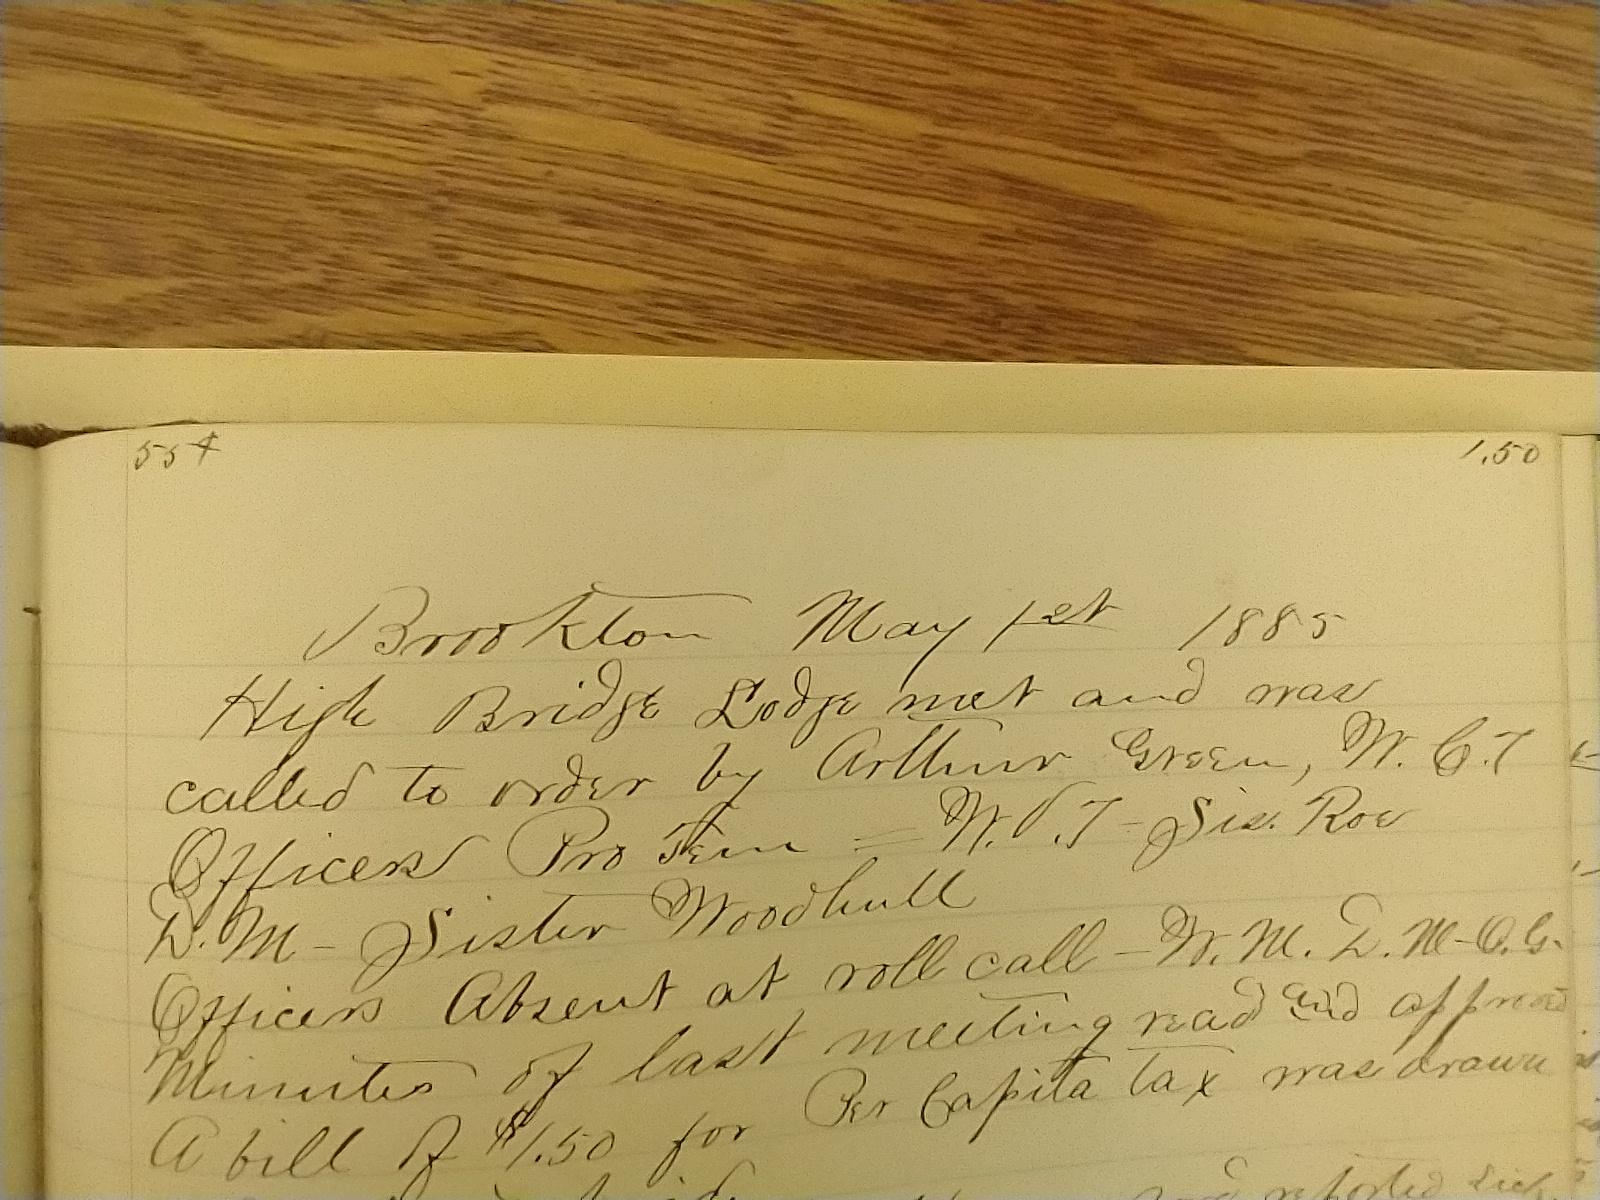 554 1.50
Brookton May 1st 1885
High Bridge Lodge met and was
called to order by Arthur Green, W. C. T
Officers Pro Tem = W. V. T - Sis. Roe
D. M - Sister Woodhull
Officers Absent at roll call - W. M. D. M - O. G.
Minutes of last meeting read and approved
A bill of $1.50 for Per Capita tax was drawn
reported sick